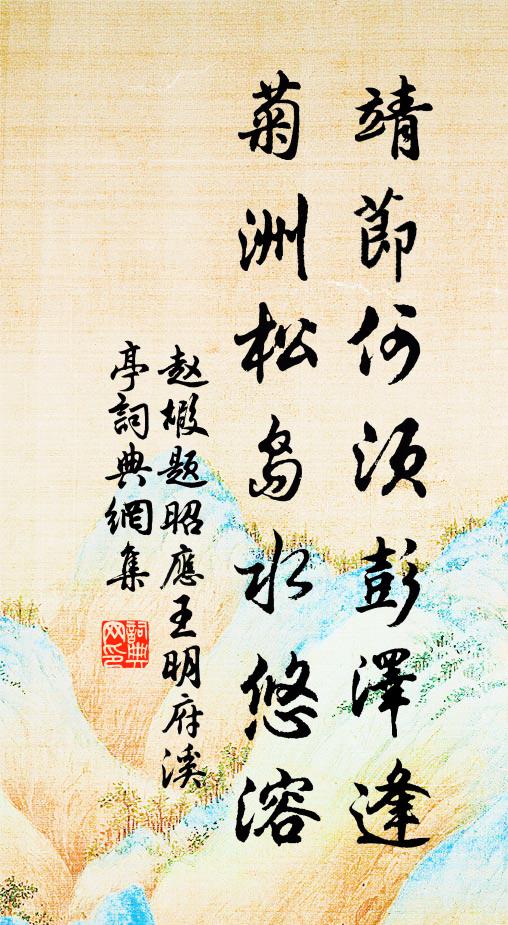 靖節何須彭澤逢
菊洲松島水悠溶
赵嘏题昭應王明府溪
亭詞典網集
詞典网印